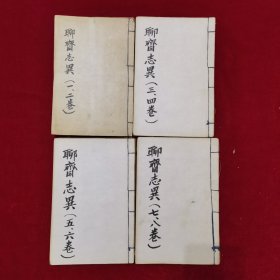 聊齋志異(一、二卷)
聊齋志異(三、四卷)
聊齋志異(五、六卷)
聊齋志異(七、八卷)